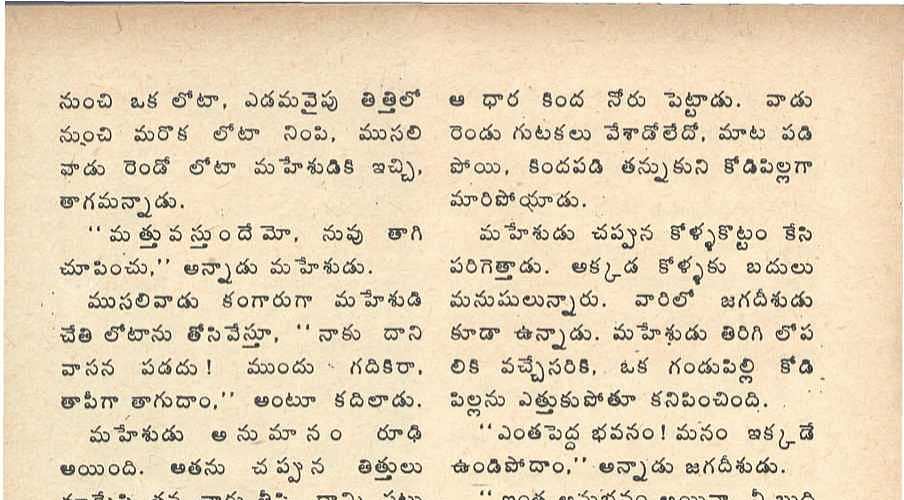 నుంచి ఒక లోటా, ఎడమవైపు తిత్తిలో
నుంచి మరొక లోటా నింపి, ముసలి
వాడు రెండో లోటా మహేశుడికి ఇచ్చి,
తాగమన్నాడు.
‘‘మత్తువస్తుందేమో, నువు తాగి
చూపించు,’’ అన్నాడు మహేశుడు.
ముసలివాడు కంగారుగా మహేశుడి
చేతి లోటాను తోసివేస్తూ, ‘‘నాకు దాని
వాసన పడదు! ముందు గదికిరా,
తాపీగా తాగుదాం,’’ అంటూ కదిలాడు.
మహేశుడు అనుమానం రూఢి
అయింది. అతను చప్పున తిత్తులు
ఆ ధార కింద నోరు పెట్టాడు. వాడు
రెండు గుటకలు వేశాడోలేదో, మాట పడి
పోయి, కిందపడి తన్నుకుని కోడిపిల్లగా
మారిపోయాడు.
మహేశుడు చప్పున కోళ్ళకొట్టం కేసి
పరిగెత్తాడు. అక్కడ కోళ్ళకు బదులు
మనుషులున్నారు. వారిలో జగదీశుడు
కూడా ఉన్నాడు. మహేశుడు తిరిగి లోప
లికి వచ్చేసరికి, ఒక గండుపిల్లి కోడి
పిల్లను ఎత్తుకుపోతూ కనిపించింది.
‘‘ఎంతపెద్ద భవనం! మనం ఇక్కడే
ఉండిపోదాం,’’ అన్నాడు జగదీశుడు.